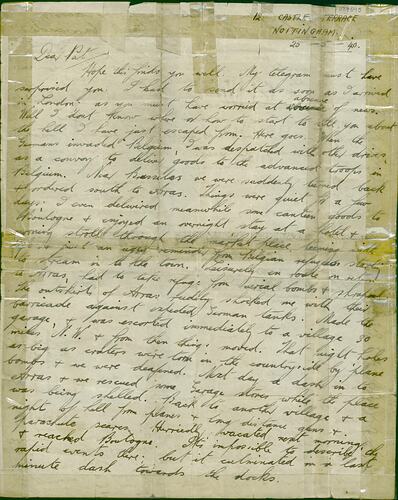 12 CASTLE TERRACE
NOTTINGHAM
Dear Pat,
Hope this finds you well. My telegram must have
surprised you. I had to send it as soon as I arrived
in London as you must have worried at absence of news.
Well I don't know when or how to start to tell you about
the hell I have just escaped from. Here goes. When the
Germans invaded Belgium, I was despatched with other drivers
as a convoy to deliver goods to the advanced troops in
Belgium. Near Brussels we were suddenly turned back
& ordered south to Arras. Things were quiet for a few
days. I even delivered meanwhile some canteen goods to
Boulogne & enjoyed an overnight stay at a hotel &
morning stroll through the market place
just an from Belgian refugees
to stream in to the town. Leisurely en route on return
to Arras, had to take refuge from aerial bombs & shrapnel
The outskirts of Arras shocked me with their
barricade against expected German tanks. Made the
garage, & was escorted immediately to a village 30
miles N.W. & from then things moved. That night holes
as big as craters were torn in the countryside by plane
bombs & we were deafened. Next day a dash in to
Arras & we rescued some Garage stores while the place
was being shelled. Back to another village & a
night of hell from planes & long distance guns &
Parachute scares. Hurriedly evacuated next morning
& reached Boulogne. Its impossible to describe the
rapid events there: but it culminated in a last
minute dash towards the docks.